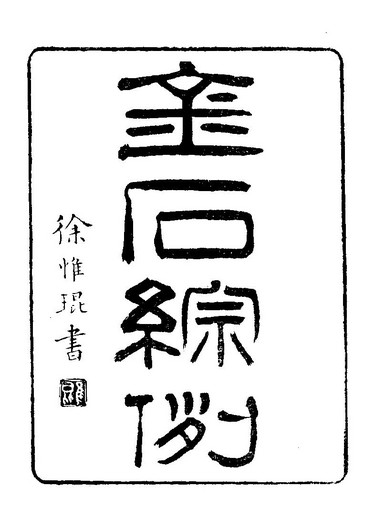 金石綜例
徐惟琨書